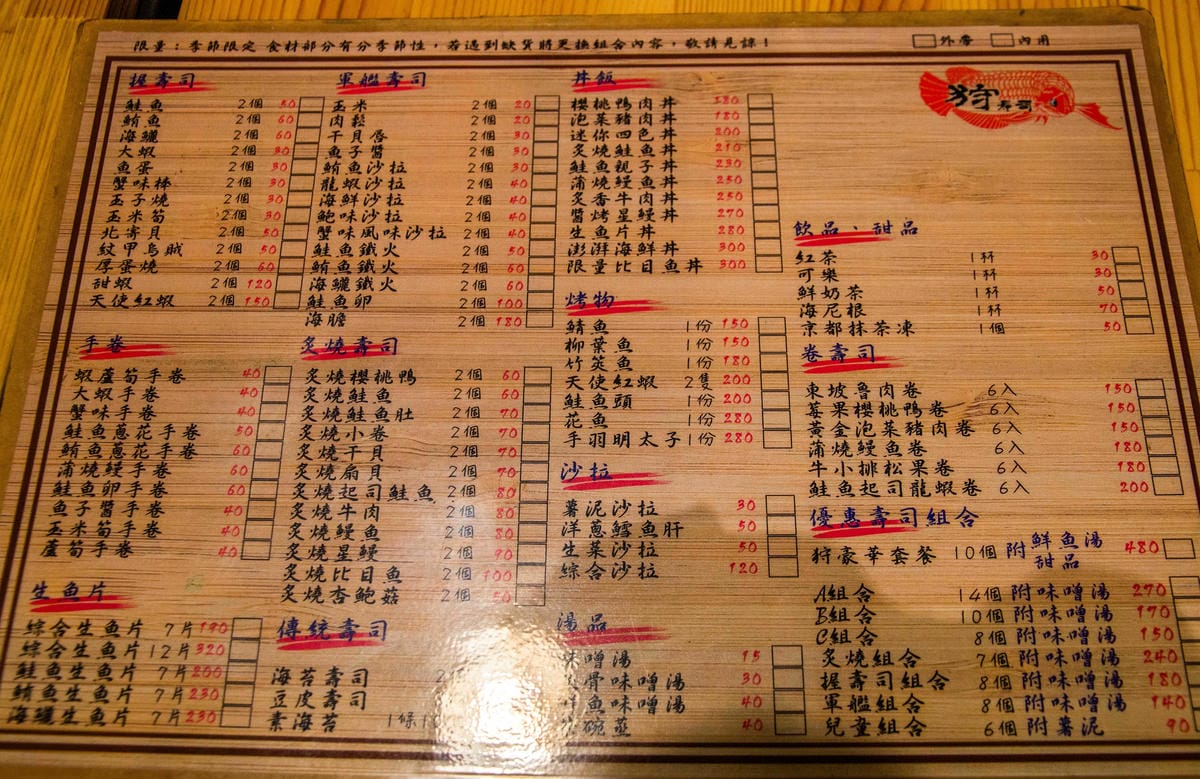 限量：季節限定 食材部分有分季節性，若遇到缺貨將更換組合內容，敬請見諒！
外帶 內用
狩 壽司
握壽司
鮭魚 2個 50
鮪魚 2個 60
海鱺 2個 60
大蝦 2個 30
魚蛋 2個 30
蟹味棒 2個 30
玉子燒 2個 30
玉米筍 2個 30
北寄貝 2個 50
紋甲烏賊 2個 50
厚蛋燒 2個 60
甜蝦 2個 120
天使紅蝦 2個 150
手卷
蝦蘆筍手卷 40
大蝦手卷 40
蟹味手卷 40
鮭魚蔥花手卷 50
鮪魚蔥花手卷 60
蒲燒鰻手卷 60
鮭魚卵手卷 60
魚子醬手卷 40
玉米筍手卷 40
蘆筍手卷 40
生魚片
綜合生魚片 7片 190
綜合生魚片 12片 320
鮭魚生魚片 7片 200
鮪魚生魚片 7片 230
海鱺生魚片 7片 230
軍艦壽司
玉米 2個 20
肉鬆 2個 20
干貝唇 2個 30
魚子醬 2個 30
鮪魚沙拉 2個 30
龍蝦沙拉 2個 40
海鮮沙拉 2個 40
鮑味沙拉 2個 40
蟹味風味沙拉 2個 40
鮭魚鐵火 2個 50
鮪魚鐵火 2個 60
海鱺鐵火 2個 60
鮭魚卵 2個 100
海膽 2個 180
炙燒壽司
炙燒櫻桃鴨 2個 60
炙燒鮭魚 2個 60
炙燒鮭魚肚 2個 70
炙燒小卷 2個 70
炙燒干貝 2個 70
炙燒扇貝 2個 70
炙燒起司鮭魚 2個 80
炙燒牛肉 2個 80
炙燒鰻魚 2個 80
炙燒星鰻 2個 90
炙燒比目魚 2個 100
炙燒杏鮑菇 2個 50
傳統壽司
海苔壽司
豆皮壽司
素海苔 1條
丼飯
櫻桃鴨肉丼 180
泡菜豬肉丼 180
迷你四色丼 200
炙燒鮭魚丼 210
鮭魚親子丼 230
蒲燒鰻魚丼 250
炙香牛肉丼 250
醬烤星鰻丼 270
生魚片丼 280
澎湃海鮮丼 300
限量比目魚丼 300
烤物
鯖魚 1份 150
柳葉魚 1份 150
竹筴魚 1份 180
天使紅蝦 2隻 200
鮭魚頭 1份 200
花魚 1份 280
手羽明太子 1份 280
沙拉
薯泥沙拉 30
洋蔥鱈魚肝 50
生菜沙拉 50
綜合沙拉 120
湯品
味噌湯 15
骨味噌湯 30
魚味噌湯 40
碗蒸 40
飲品、甜品
紅茶 1杯 30
可樂 1杯 30
鮮奶茶 1杯 50
海尼根 1杯 70
京都抹茶凍 1個 50
卷壽司
東坡魯肉卷 6入 150
莓果櫻桃鴨卷 6入 150
黃金泡菜豬肉卷 6入 150
蒲燒鰻魚卷 6入 180
牛小排松果卷 6入 180
鮭魚起司龍蝦卷 6入 200
優惠壽司組合
狩豪華套餐 10個 附 鮮魚湯 甜品 480
A組合 14個 附味噌湯 270
B組合 10個 附味噌湯 170
C組合 8個 附味噌湯 150
炙燒組合 7個 附味噌湯 240
握壽司組合 8個 附味噌湯 180
軍艦組合 8個 附味噌湯 140
兒童組合 6個 附薯泥 90